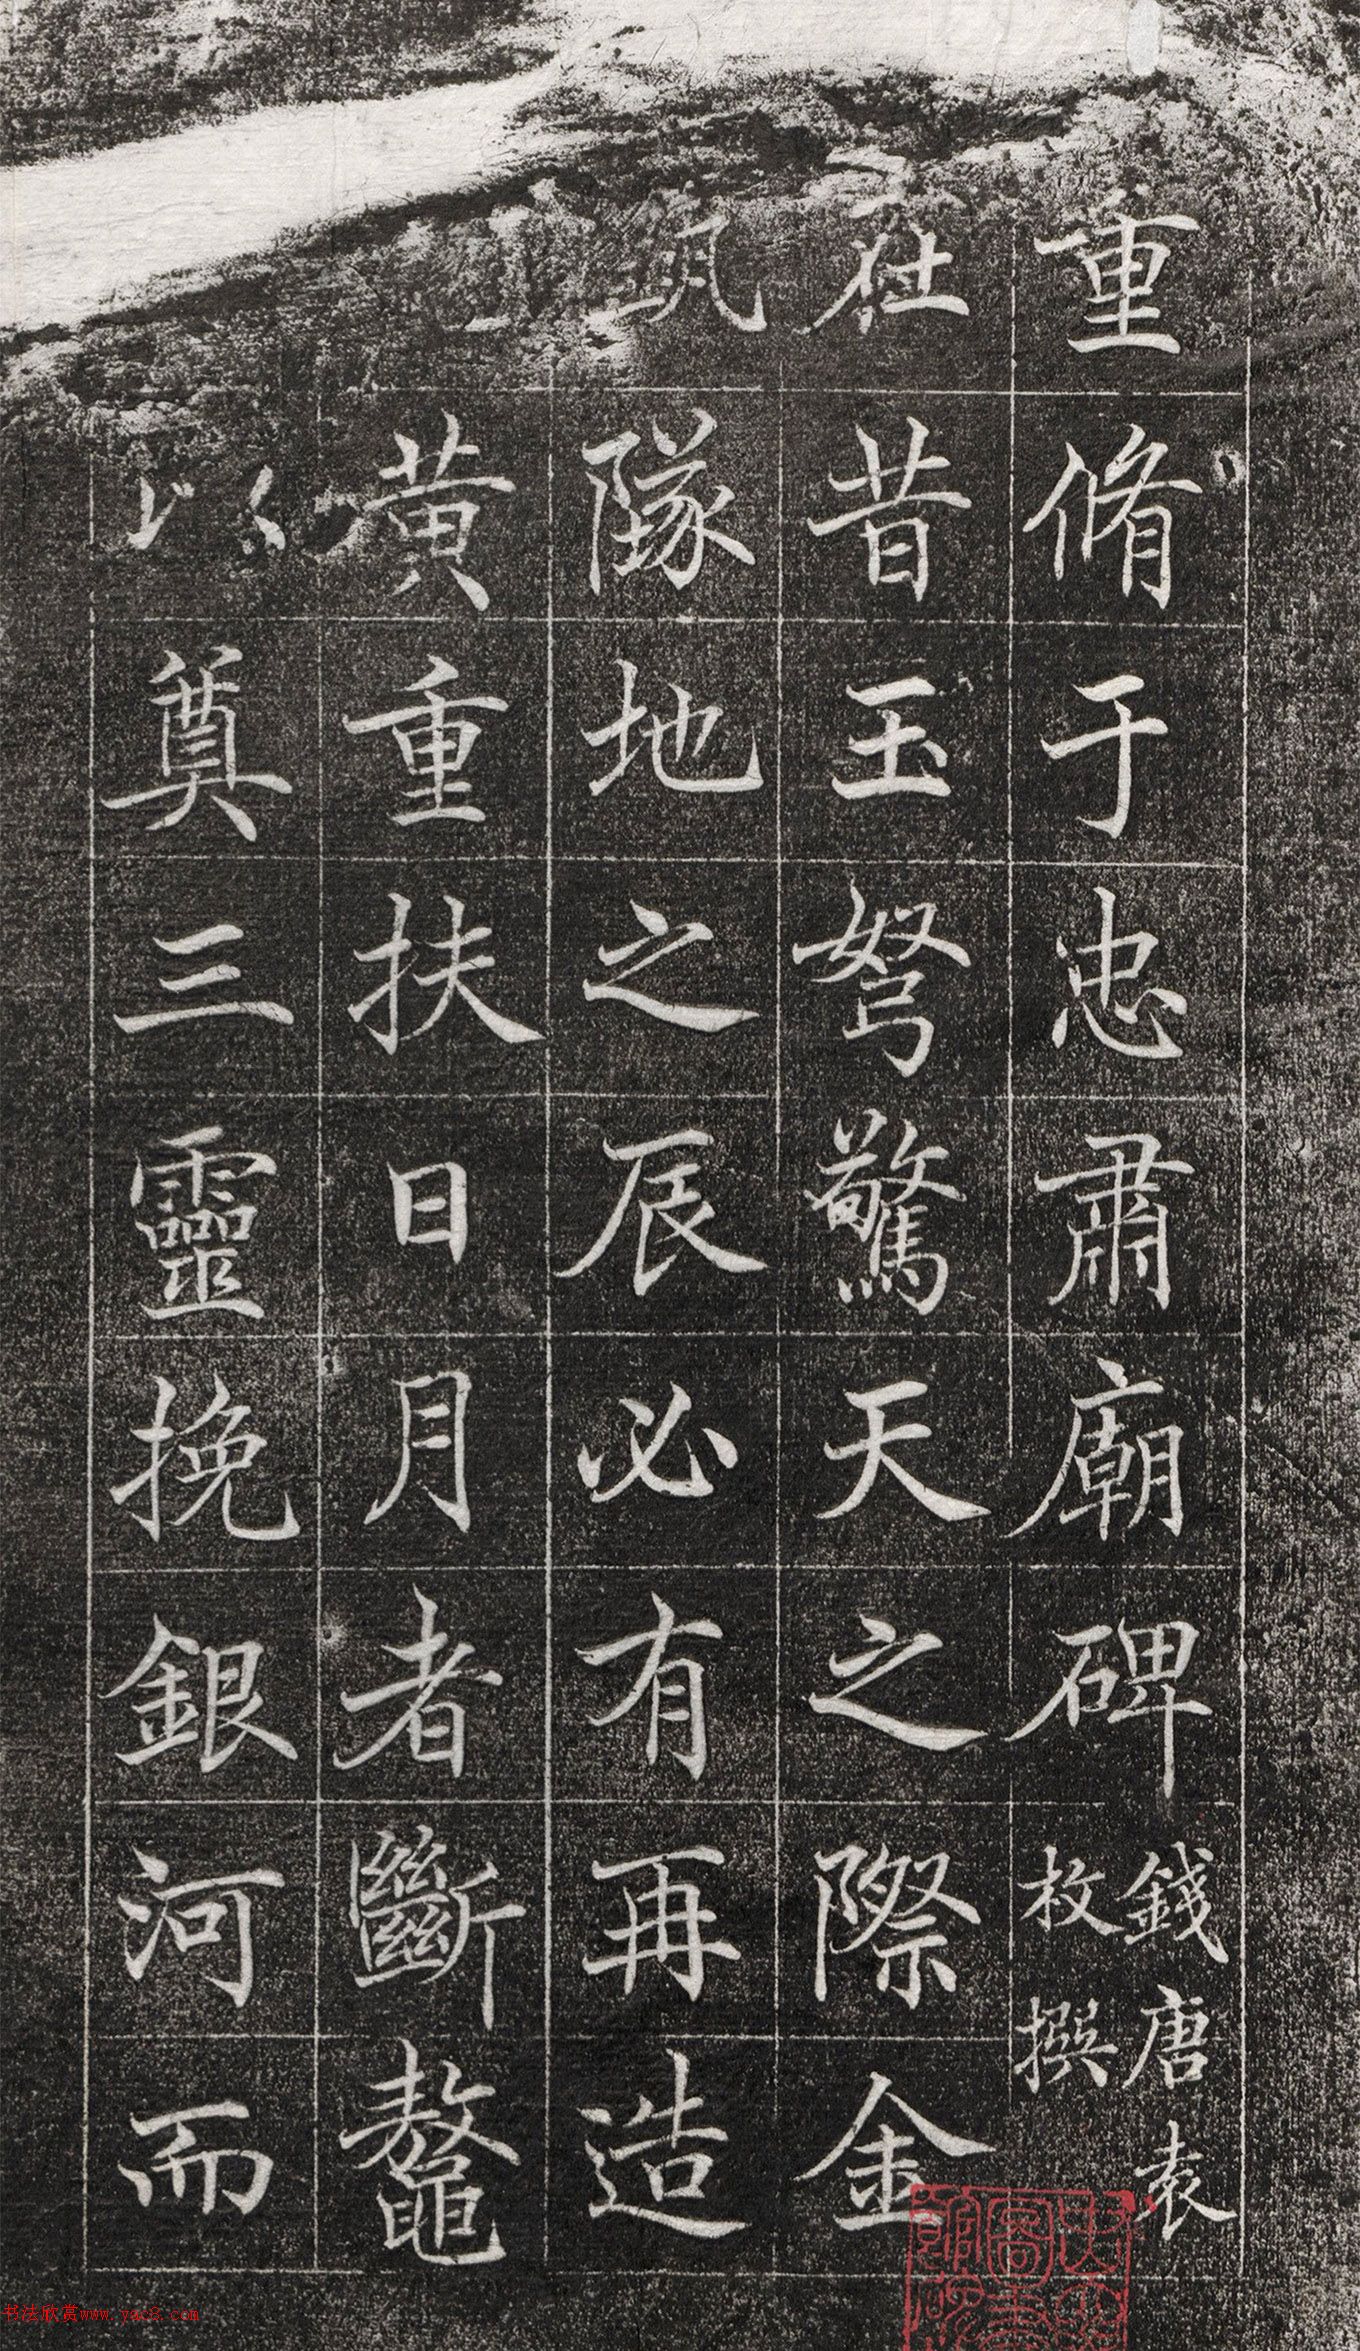 重脩于忠肅廟碑 錢唐袁
枚撰
在昔玉弩驚天之際金
隊地之辰必有再造
黃重扶日月者斷鼇
以奠三靈挽銀河而
书法欣赏www.yac8.com